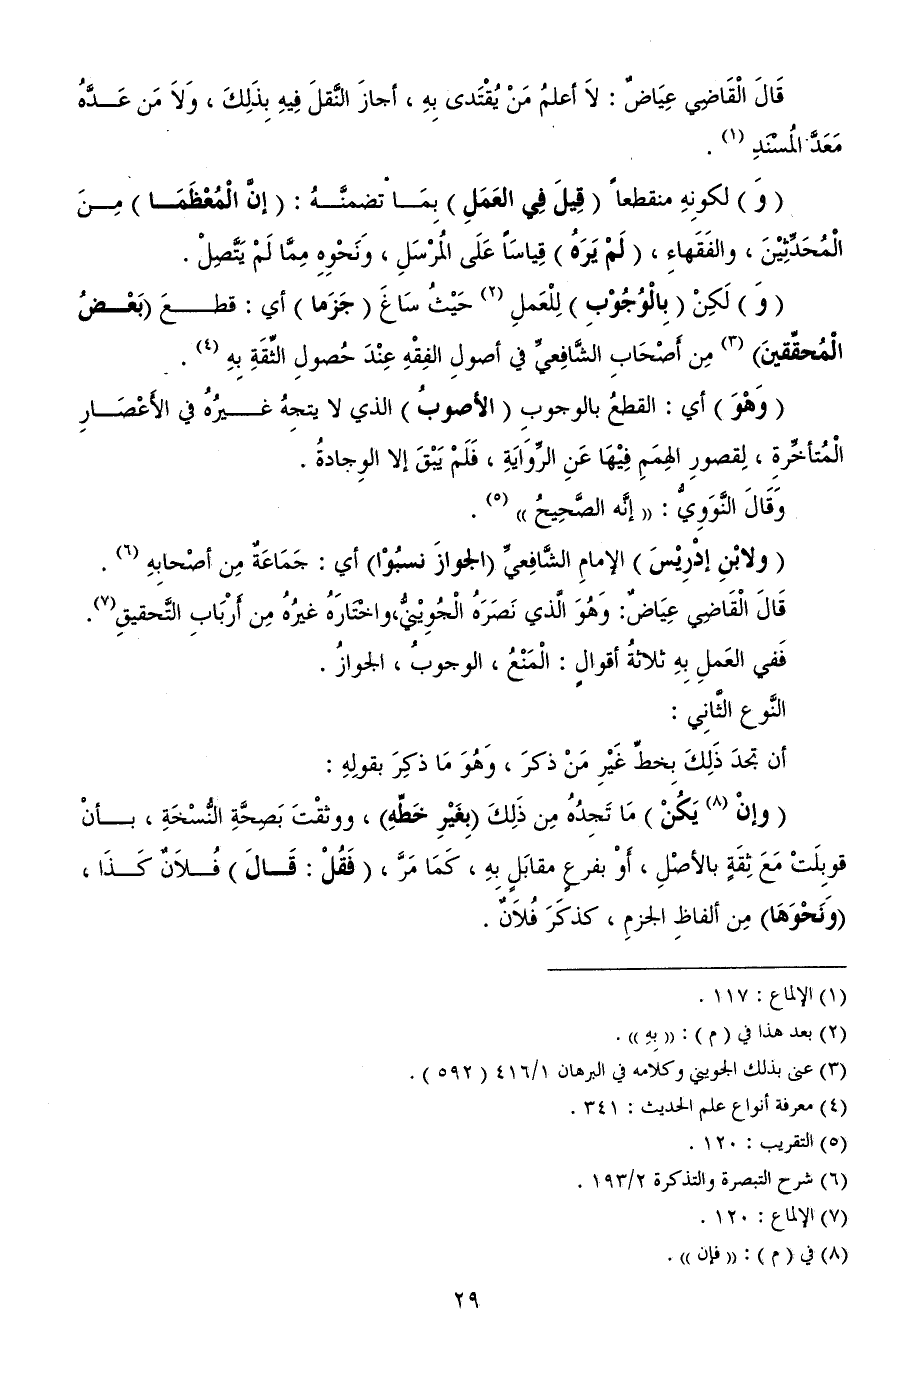 قَالَ الْقَاضِي عِيَاضٌ : لاَ أعلمُ مَنْ يُقْتَدى بِهِ ، أجازَ النَّقلَ فِيهِ بِذَلِكَ ، وَلاَ مَن عَـــدَّهُ
مَعَدَّ المُسْنَدِ (١) .
( وَ ) لكونِهِ منقطعاً ( قِيلَ فِي العَمَلِ ) بِمَـــا تضمنَّـــهُ : ( إنَّ الْمُعْظَمَـــا ) مِـــنَ
الْمُحَدِّثِيْنَ ، والفَقهاءِ ، ( لَمْ يَرَهُ ) قياسَاً عَلَى المُرْسَلِ ، ونَحْوِهِ مِمَّا لَمْ يَتَّصِلْ .
( وَ ) لَكِنْ ( بِالْوُجُوْبِ ) لِلْعَملِ (٢) حَيْثُ سَاغَ ( جَزَما ) أي : قطـــعَ (بَعْـــضُ
الْمُحقِّقينَ) (٣) مِن أَصْحَابِ الشَّافعيِّ في أصولِ الفِقْهِ عِنْدَ حُصولِ الثِّقَةِ بِهِ (٤) .
( وَهْوَ ) أي : القطعُ بالوجوبِ ( الأصوبُ ) الذي لا يتجهُ غـــيرُهُ في الأَعْصَـــارِ
الْمُتأخِّرةِ ، لِقصورِ الهِمَمِ فِيْهَا عَنِ الرِّوَايَةِ ، فَلَمْ يَبْقَ إلا الوِجادةُ .
وَقَالَ النَّوَوِيُّ : « إنَّه الصَّحِيحُ » (٥) .
( ولابْنِ إدْرِيْسَ ) الإمامِ الشَّافعيِّ (الجوازَ نسبُوْا) أي : جَمَاعَةٌ مِن أصْحابِهِ (٦) .
قَالَ الْقَاضِي عِيَاضٌ: وَهُوَ الَّذي نَصَرَهُ الْجُوَيْنِيُّ،واخْتَارَهُ غيرُهُ مِن أَرْبَابِ التَّحقيقِ(٧).
فَفي العَملِ بِهِ ثلاثةُ أقوالٍ : الْمَنْعُ ، الوجوبُ ، الجوازُ .
النَّوع الثَّانِي :
أن تجدَ ذَلِكَ بِخطِّ غَيْرِ مَنْ ذكرَ ، وَهُوَ مَا ذكِرَ بقولِهِ :
( وإنْ (٨) يَكُنْ ) مَا تَجدُهُ مِن ذَلِكَ (بِغَيْرِ خَطِّهِ) ، ووثقْتَ بَصِحَّةِ النُّسْخَةِ ، بـــأنْ
قوبِلَتْ مَعَ ثِقَةٍ بالأصْلِ ، أَوْ بفرعٍ مقابَلٍ بِهِ ، كَمَا مَرَّ ، ( فَقُلْ : قَـــالَ ) فُـــلاَنٌ كَـــذَا ،
(وَنَحْوَهَا) مِن ألفاظِ الجزمِ ، كذكَرَ فُلاَنٌ .
(١) الإلماع : ١١٧ .
(٢) بعد هذا في ( م ) : « بِهِ » .
(٣) عنى بذلك الجويني وكلامه في البرهان ٤١٦/١ ( ٥٩٢ ) .
(٤) معرفة أنواع علم الحديث : ٣٤١ .
(٥) التقريب : ١٢٠ .
(٦) شرح التبصرة والتذكرة ١٩٣/٢ .
(٧) الإلماع : ١٢٠ .
(٨) في ( م ) : « فإن » .
٢٩